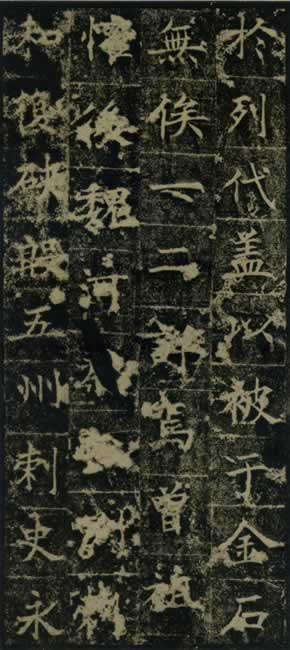 於列代盖以被于金石
無俟一二詳焉曾祖
後魏河
和硤殷五州刺史永